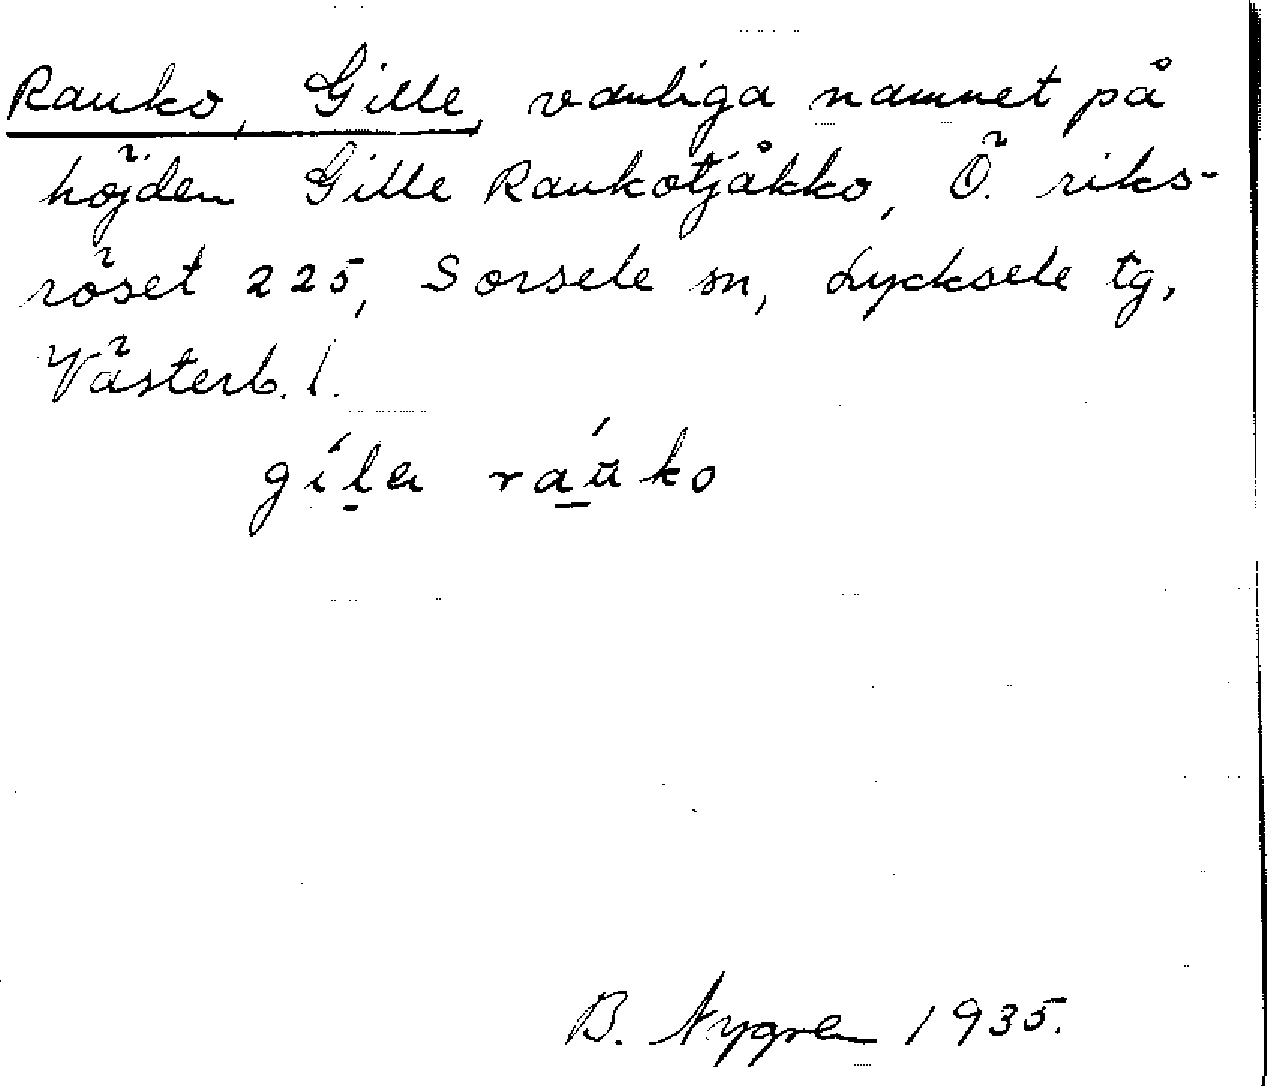 Rauko, Gille, vanliga namnet på
höjden Gille Raukotjåkko, Ö. riks-
röset 225, Sorsele sn, Lycksele tg,
Västerb. l.
gíla raúko
B. Nygren 1935.